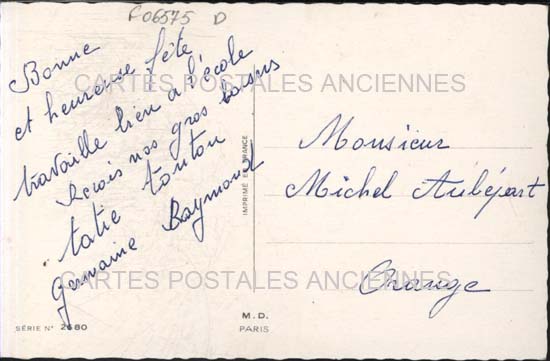 F06575 D
Bonne
et heureuse fête
travaille bien a l'école
Recois nos gros baisers
tatie tonton
Germaine Raymond
CARTES POSTALES ANCIENNES
IMPRIMÉ EN FRANCE
Monsieur
Michel Aubépart
Orange
CARTES POSTALES ANCIENNES
SÉRIE N° 2680
M.D.
PARIS